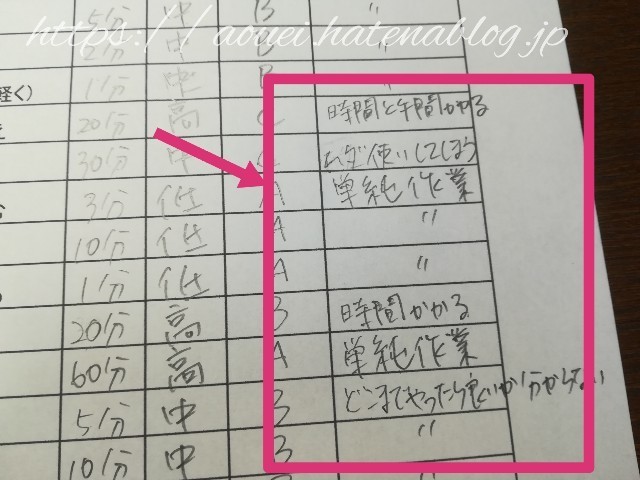 https://aouei.hatenablog.jp
5分 中 B 〃
2分 中 B
1分 中 B 〃
軽く）
20分 高 C 時間と手間かかる
30分 中 C ムダ使いしてしまう
3分 低 A 単純作業
10分 低 A 〃
1分 低 A 〃
20分 高 B 時間かかる
60分 高 A 単純作業
5分 中 B どこまでやったら良いか分からない
10分 中 B 〃